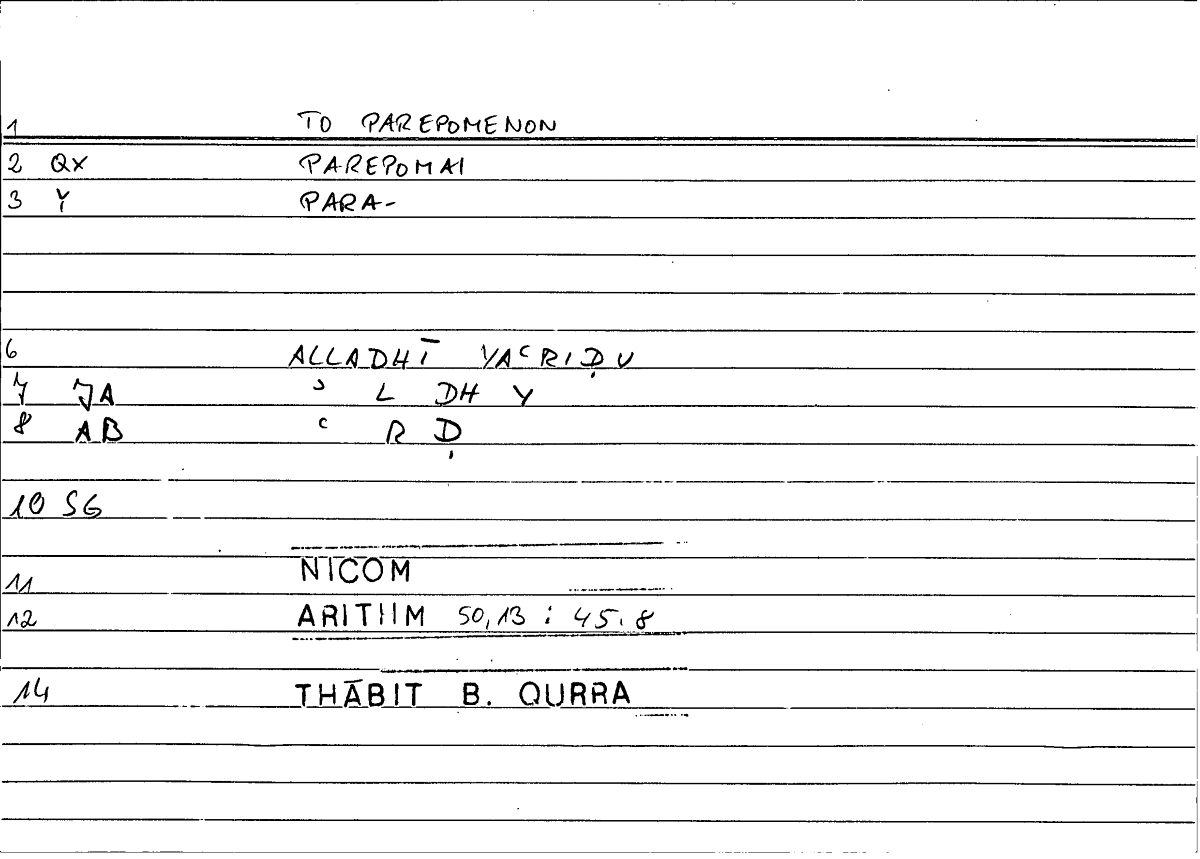 1 TO PAREPOMENON
2 QX PAREPOMAI
3 Y PARA-
6 ALLADHĪ YAʿRIḌU
7 JA ʾ L DH Y
8 AB ʿ R Ḍ
10 SG
11 NICOM
12 ARITHM 50,13 : 45.8
14 THĀBIT B. QURRA